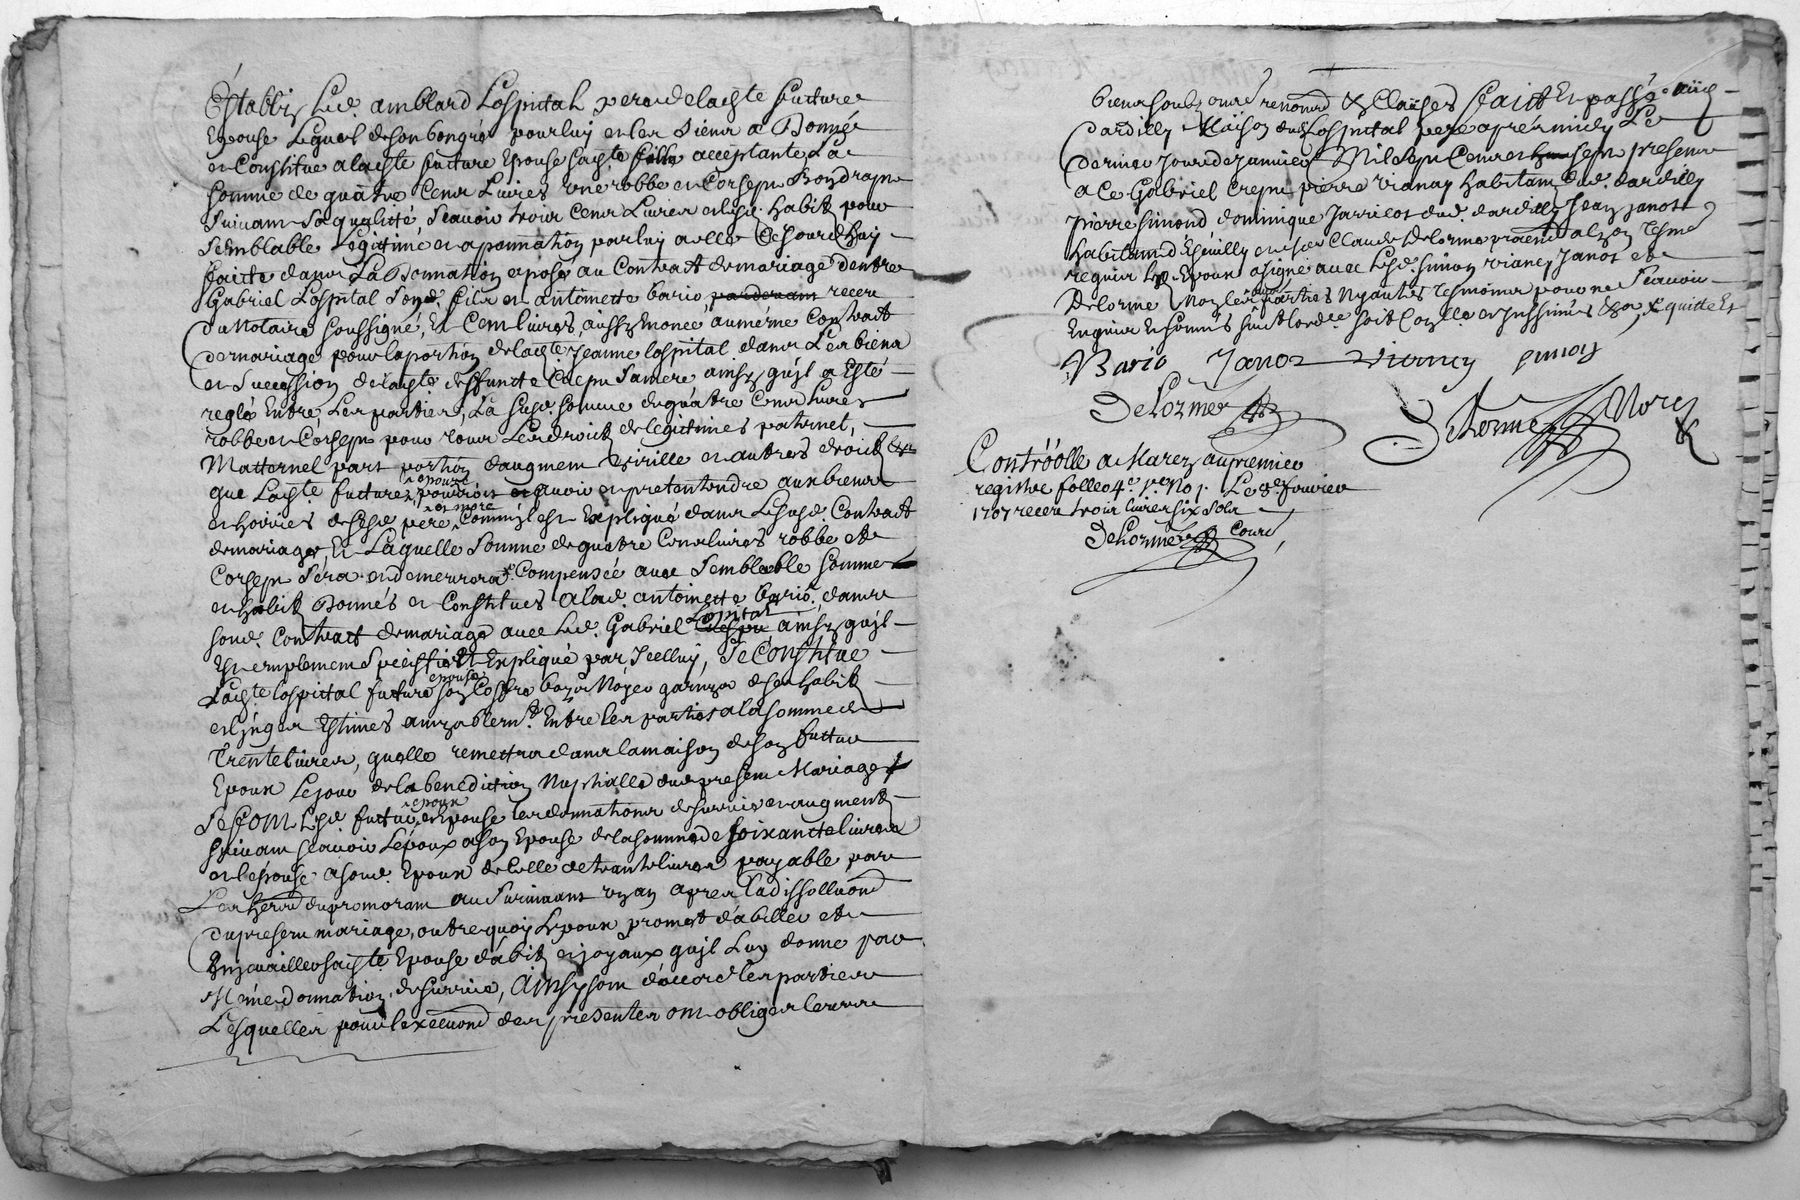 Establis Led. amblard Lospital pere de ladte future
Epouse Lequel de son bon gré pour luy et les siens a Donné
et Constitue a ladte future Epouse sadte fille acceptante La
somme de quatre Cent Livres une robbe et Corsept Bon drapt
suivant sa qualitté, scavoir trois Cent Livres et lesd. habits pour
semblable Legittime et apannation par luy a elle Cejourdhuy
faicte dans La Donnation aposé au Contract de mariage d'entre
Gabriel Lospital Sond. fils et antoinette bario pardevant receu
du Notaire soussigné, Et Cent livres aussy Enoncé au même Contract
de mariage pour la portion de ladte Jeanne lospital dans Les biens
et succession de ladte deffuncte Crept sa mere ainsy quil a Esté
reglé Entre Les parties, La susd. somme de quatre Cent Livres
robbe et Corsept pour tous Les droits de legittimes paternel,
Matternel part portion d'augment virille et autres droits &a
que Ladte future epouse pouvoit avoir et pretentendre aux biens
et hoiries de sesd. pere et mere Comm'il est Expliqué dans Le susd. Contract
de mariage, Et Laquelle somme de quatre Cent livres robbe et
Corsept sera et demeurera Compensée avec semblable somme
et habits Donnés et Constitués a lad. antoinette bario dans
sond. Contract de mariage avec Led. Gabriel Lospital ainsy quil
Est emplement Speciffié Et Expliqué par Icelluy, Se Constitue
Ladte lospittal future epouse son Coffre boys Noyer garny de ses habits
et linges Estimés amyablemt. Entre les parties a la somme de
trente livres, quelle remettra dans la maison de son futtur
Epoux Le jour de la benediction Nuptialle du present Mariage
Se font Lesd. futturs epoux et Epouse les donnations de survie et augment
suivant scavoir L'epoux a son Epouse de la somme de soixante livres
et l'epouse a sond. Epoux de Celle de trante livres payable par
Les herrs du premorant au survivant un an apres la dissolluond
du present mariage, outre quoy L'epoux promet d'abiller et
Enjouailler sadte Epouse d'abits et joyaux quil Luy donne par
même donnation de survie, Ainsy sont d'accord les parties
Lesquelles pour l'execuond des presentes ont obligés leurs
biens soubz ... renond & Clauses faict Et passé aud.
dardilly Maison dud. Lospital pere après midy Le
dernier Jour de Janvier Mil Sept Cent et sept present
a Ce Gabriel Crept pierre vianay habitants dud. dardilly
pierre Simond dominique Jarricot dud. dardilly Jean Janot
habitant d'Escuilly et sieur Claude Delorme praticien a lyon tesms
requis Les Epoux a signé avec Lesd. simon vianey Janot et
Delorme Non les autres parties Ny autres tesmoins pour ne scavoir
Enquis Et sommés suivt lordce
Bario Janot vianey simon
Delorme
Delorme Nore
Controolle a Marez au premier
registre folleo 4e. No 1. Le 8e. fevrier
1707 receu trois livres six Sols
Delorme Comis